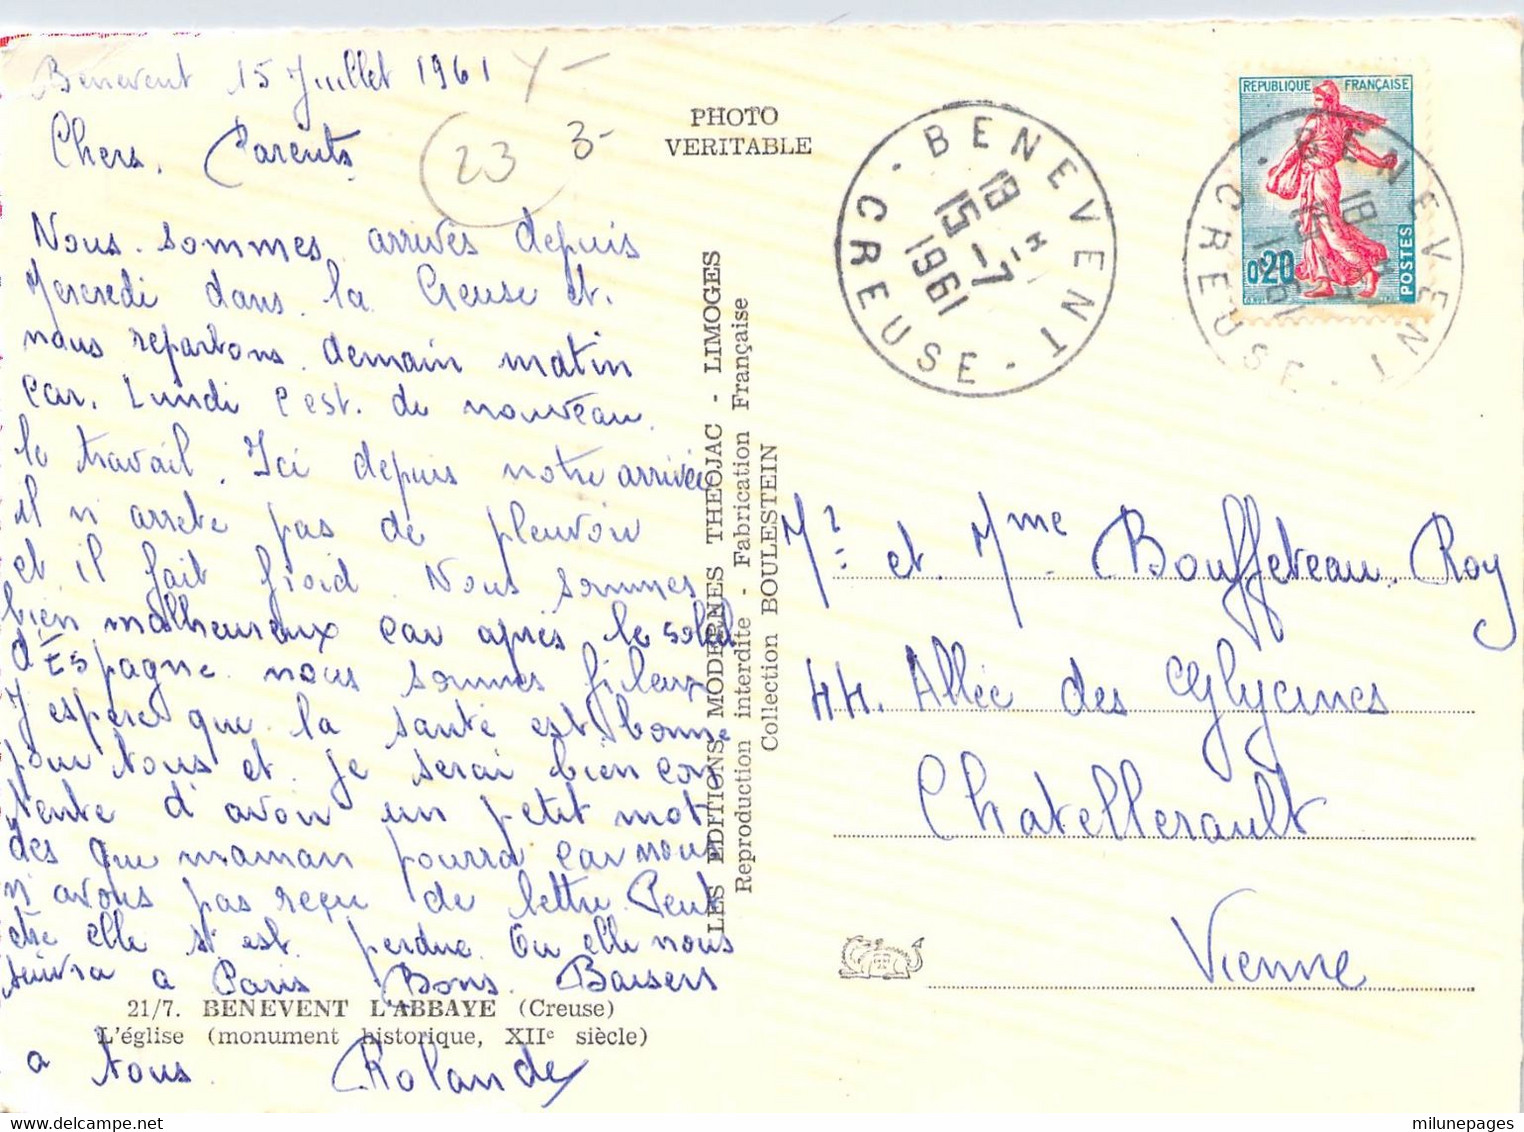 Benevent 15 Juillet 1961
Chers Parents
23 3-
Nous sommes arrivés depuis
Mercredi dans la Creuse et
nous repartons demain matin
car Lundi c'est de nouveau
le travail. Ici depuis notre arrivée
il n'arrete pas de pleuvoir
et il fait froid. Nous sommes
bien malheureux car après le soleil
d'Espagne nous sommes
J'espere que la santé est bonne
pour tous et je serai bien con
tente d'avoir un petit mot
des que maman pourra car nous
n'avons pas reçu de lettre. Peut
etre elle s'est perdue. Ou elle nous
suivra a Paris Bons Baisers
a tous Rolande
21/7. BENEVENT L'ABBAYE (Creuse)
L'église (monument historique, XIIe siècle)
PHOTO
VERITABLE
LES EDITIONS MODERNES THEOJAC - LIMOGES
Reproduction interdite - Fabrication Française
Collection BOULESTEIN
BENEVENT
18 H
15-7
1961
- CREUSE -
REPUBLIQUE FRANÇAISE
0,20
POSTES
BENEVENT
18 H
15-7
1961
- CREUSE -
Mr et Mme Bouffeteau Roy
44. Allée des Glycines
Chatellerault
Vienne
milunepages